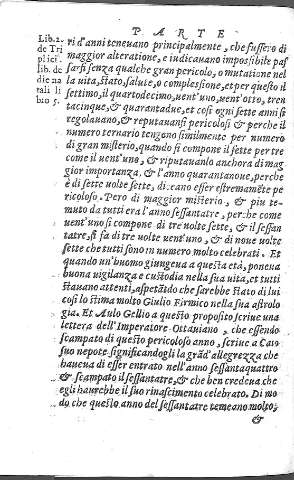 PARTE
Lib. 2.
de Tri
plici.
lib. de
die na
tali li
bro 5.
ri d'anni teneuano principalmente, che fussero di
maggior alteratione, e iudicauano impossibile pas
sarsi senza qualche gran pericolo, o mutatione nel
la uita, stato, salute, o complessione, et per questo il
settimo, il quartodecimo, uent'uno, uent'otto, tren
tacinque, & quarantadue, et cosi ogni sette anni si
regolauano, & reputauansi pericolosi & perche il
numero ternario tengono similmente per numero
di gran misterio, quando si compone il sette per tre
come il uent'uno, & riputauanlo anchora di mag
gior importanza, & l'anno quarantanoue, perche
è di sette uolte sette, diceano esser estremamẽte pe
ricoloso. Pero di maggior misterio, & piu te-
muto da tutti era l'anno sessantatre, perche come
uent'uno si compone di tre uolte sette, & il sessan
tatre, si fa di tre uolte uent'uno, & di noue uolte
sette che tutti sono in numero molto celebrati. Et
quando un'buomo giungeua a questa età, poneua
buona uigilanza e custodia nella sua uita, et tutti
stauano attenti, aspetãdo che sarebbe stato di lui
cosi lo stima molto Giulio Firmico nella sua astrolo
gia. Et Aulo Gellio a questo proposito scriue una
lettera dell'Imperatore Ottauiano, che essendo
scampato di questo pericoloso anno, scriue a Caio
suo nepote significandogli la grãd'allegrezza che
haueua di esser entrato nell'anno sessantaquattro
& scampato il sessantatre, & che ben credeua che
egli haurebbe il suo rinascimento celebrato. Di mo
do che questo anno del sessantatre temeano molto,
&